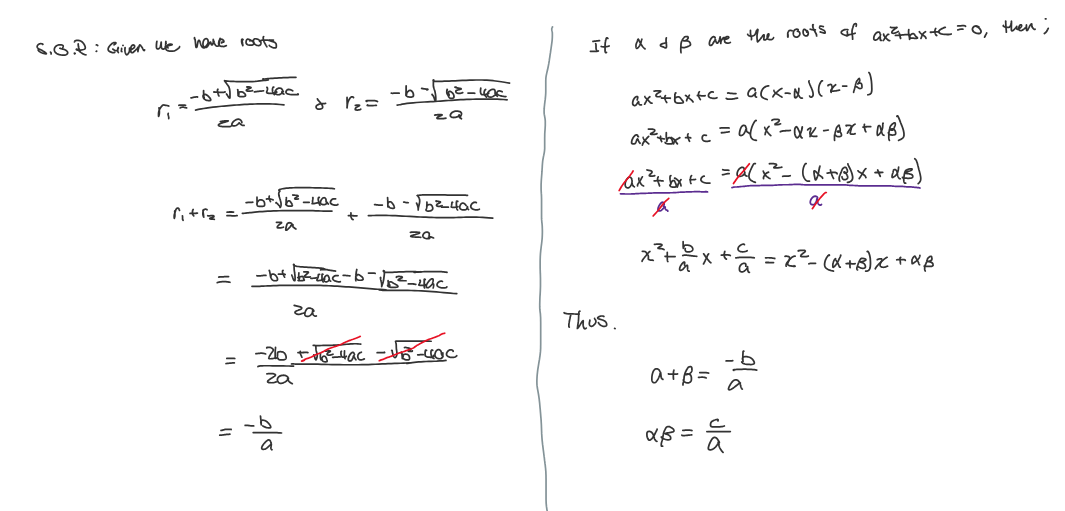 S.O.R : Given we have roots
r₁ = (-b+√(b²-4ac))/2a & r₂ = (-b-√(b²-4ac))/2a
r₁+r₂ = (-b+√(b²-4ac))/2a + (-b-√(b²-4ac))/2a
= (-b+√(b²-4ac)-b-√(b²-4ac))/2a
= (-2b+√(b²-4ac)-√(b²-4ac))/2a
= -b/a
If α & β are the roots of ax²+bx+c=0, then;
ax²+bx+c = a(x-α)(x-β)
ax²+bx+c = a(x²-αx-βx+αβ)
(ax²+bx+c)/a = a(x²-(α+β)x+αβ)/a
x²+b/a x+c/a = x²-(α+β)x+αβ
Thus.
α+β = -b/a
αβ = c/a